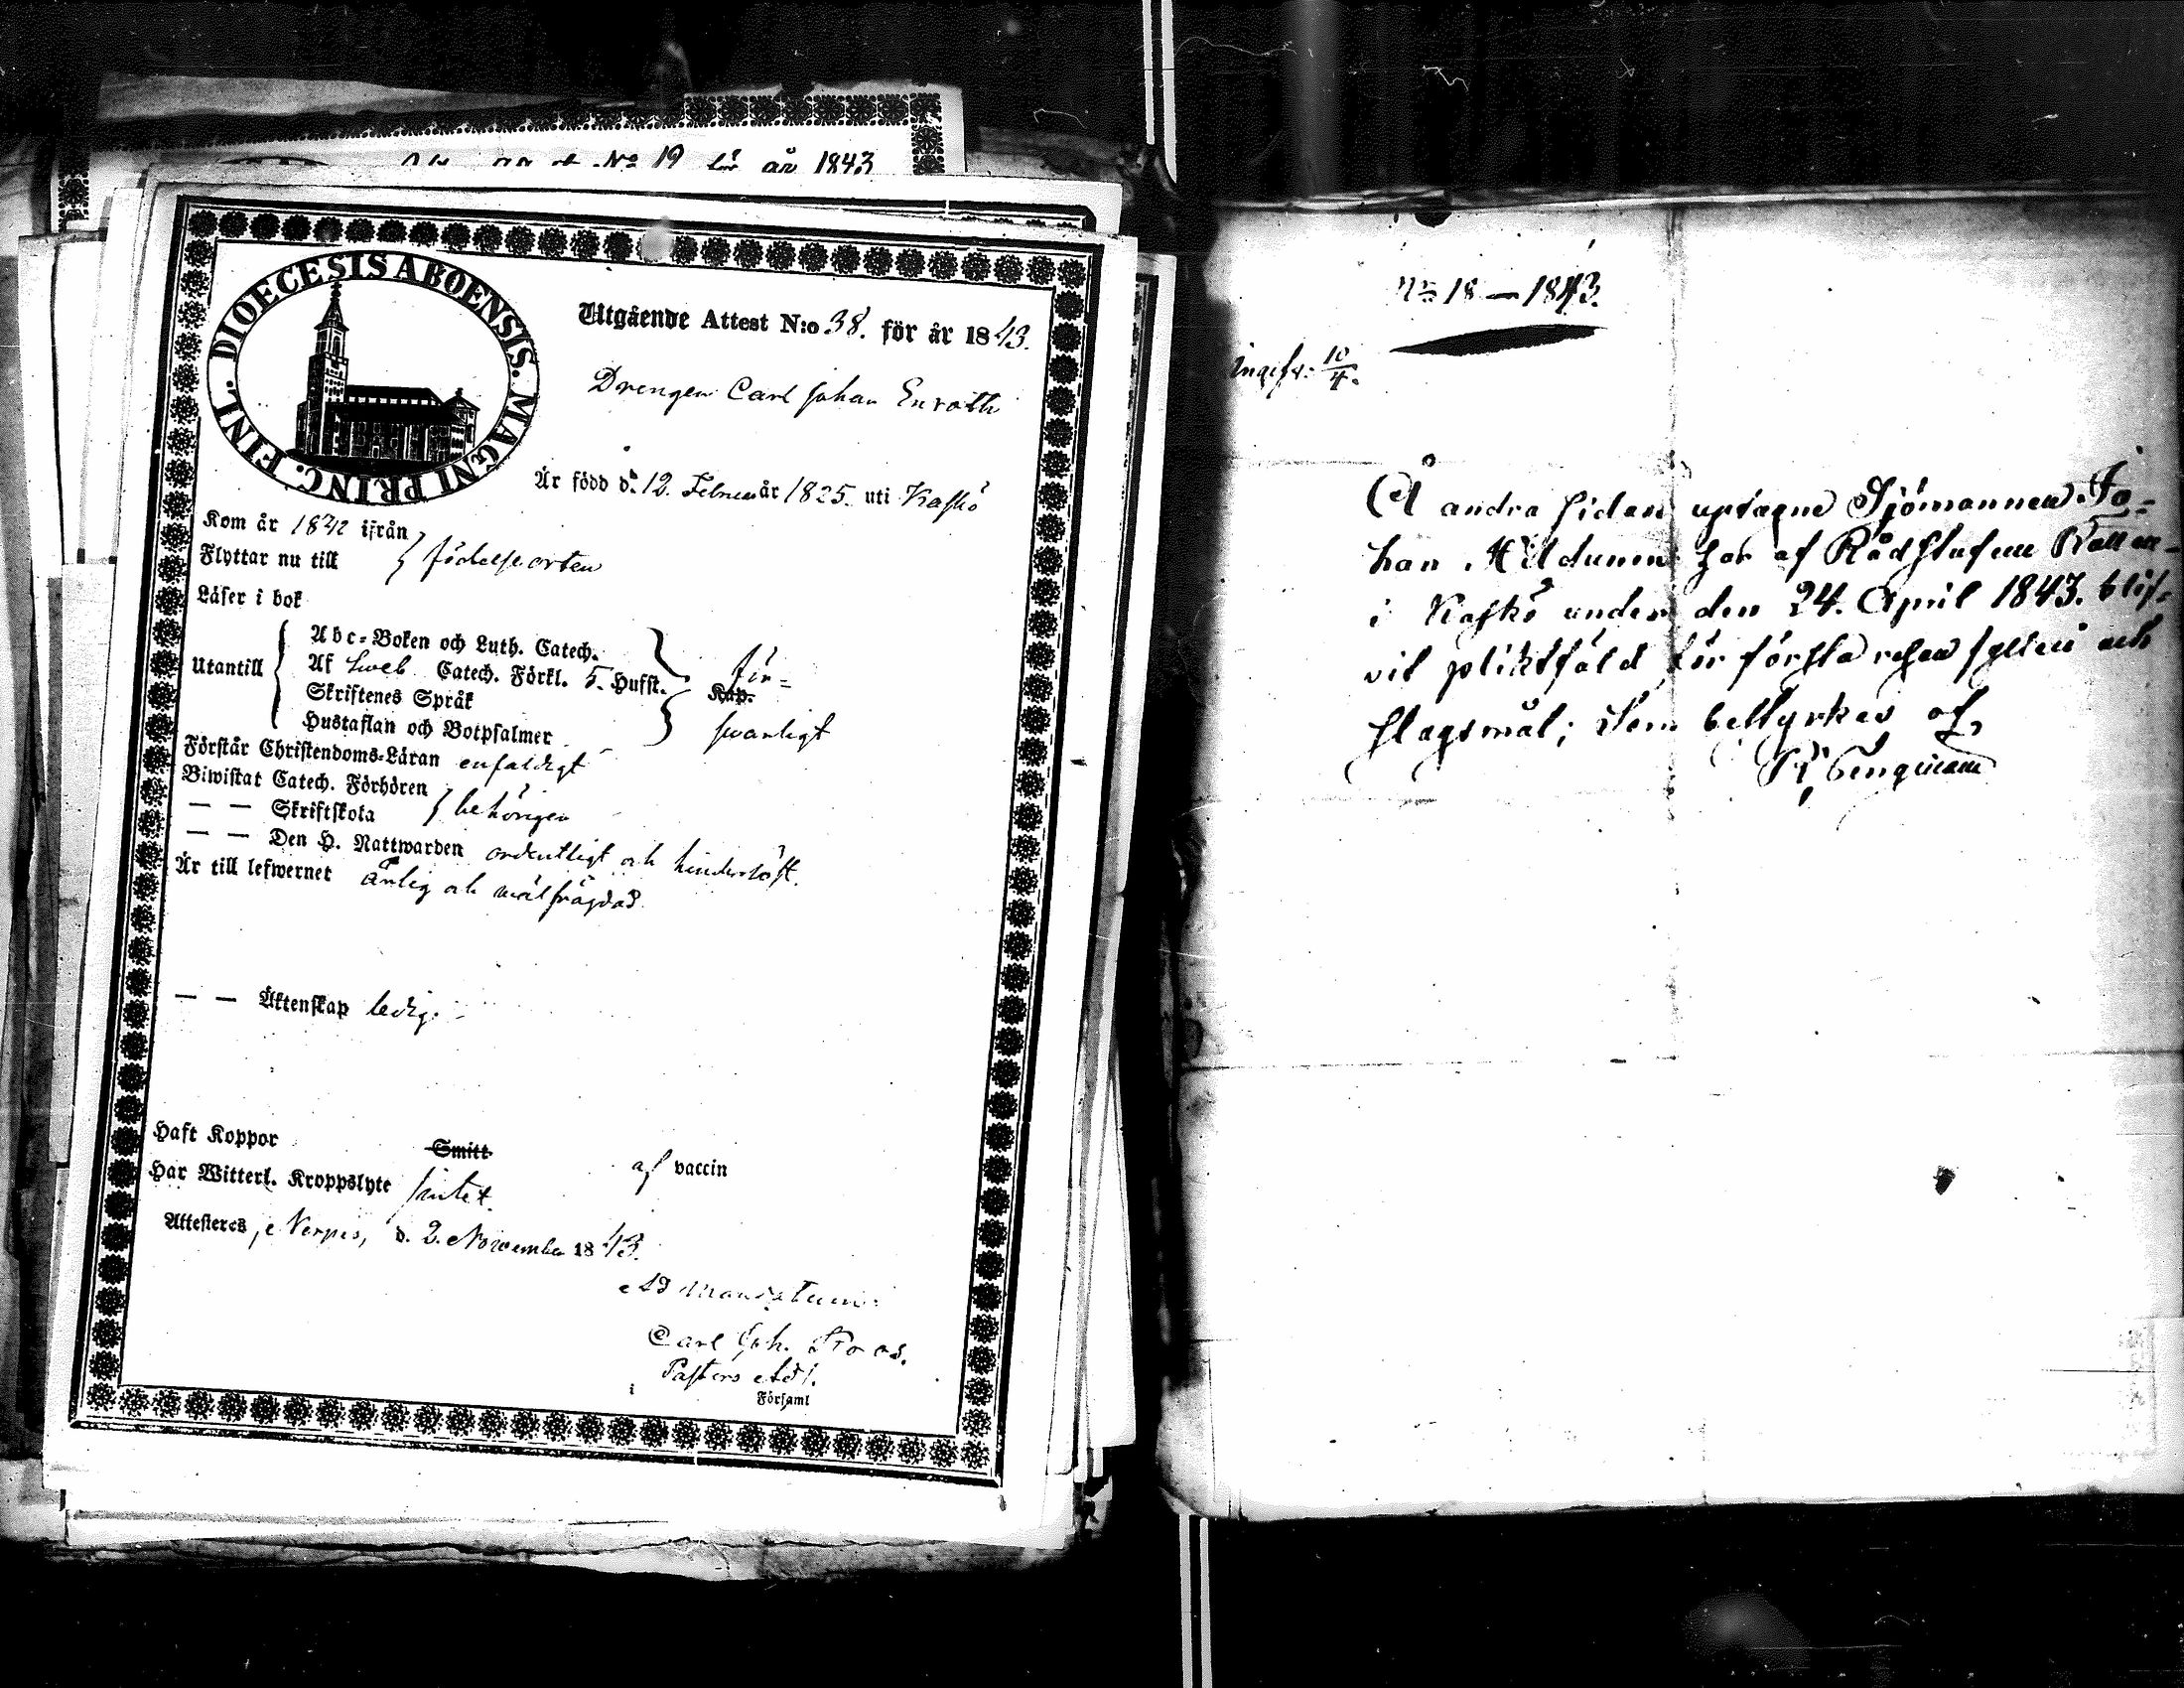 No 19 för år 1843
DIOECESIS ABOENSIS. MAGNI PRINC. FINL.
Utgående Attest N:o 38. för år 1843.
Drengen Carl Johan Enroth
Är född d. 12. Februari år 1825. uti Kaskö
Kom år 1842 ifrån
Flyttar nu till } födelseorten
Läser i bok
Utantill
Abc-Boken och Luth. Catech.
Af Sveb. Catech. Förkl. 5. Hufst.
Skriftenes Språk Kap.
Hustaflan och Botpsalmer
för=
svarligt
Förstår Christendoms-Läran enfaldigt
Biwistat Catech. Förhören
— — Skriftskola } behörigen
— — Den H. Nattwarden ordentligt och hinderslöst.
Är till lefwernet ärlig och wälfrägdad
— — Äktenskap ledig.
Haft Koppor Smitt af vaccin
Har Witterl. Kroppslyte intet.
Attesteras, Nerpes, d. 2. November 1843.
Ad mandatum:
Carl Joh. Roos.
Pastors Adj.
i Församl
No 18 — 1843.
10/4.
Å andra sidan uptagne Sjömannen Jo-
han Mildunen har af Rådstufvu Rätten
i Kaskö under den 24. April 1843. blif-
vit pliktfäld för första resan fylleri och
slagsmål; Som bestyrkes af